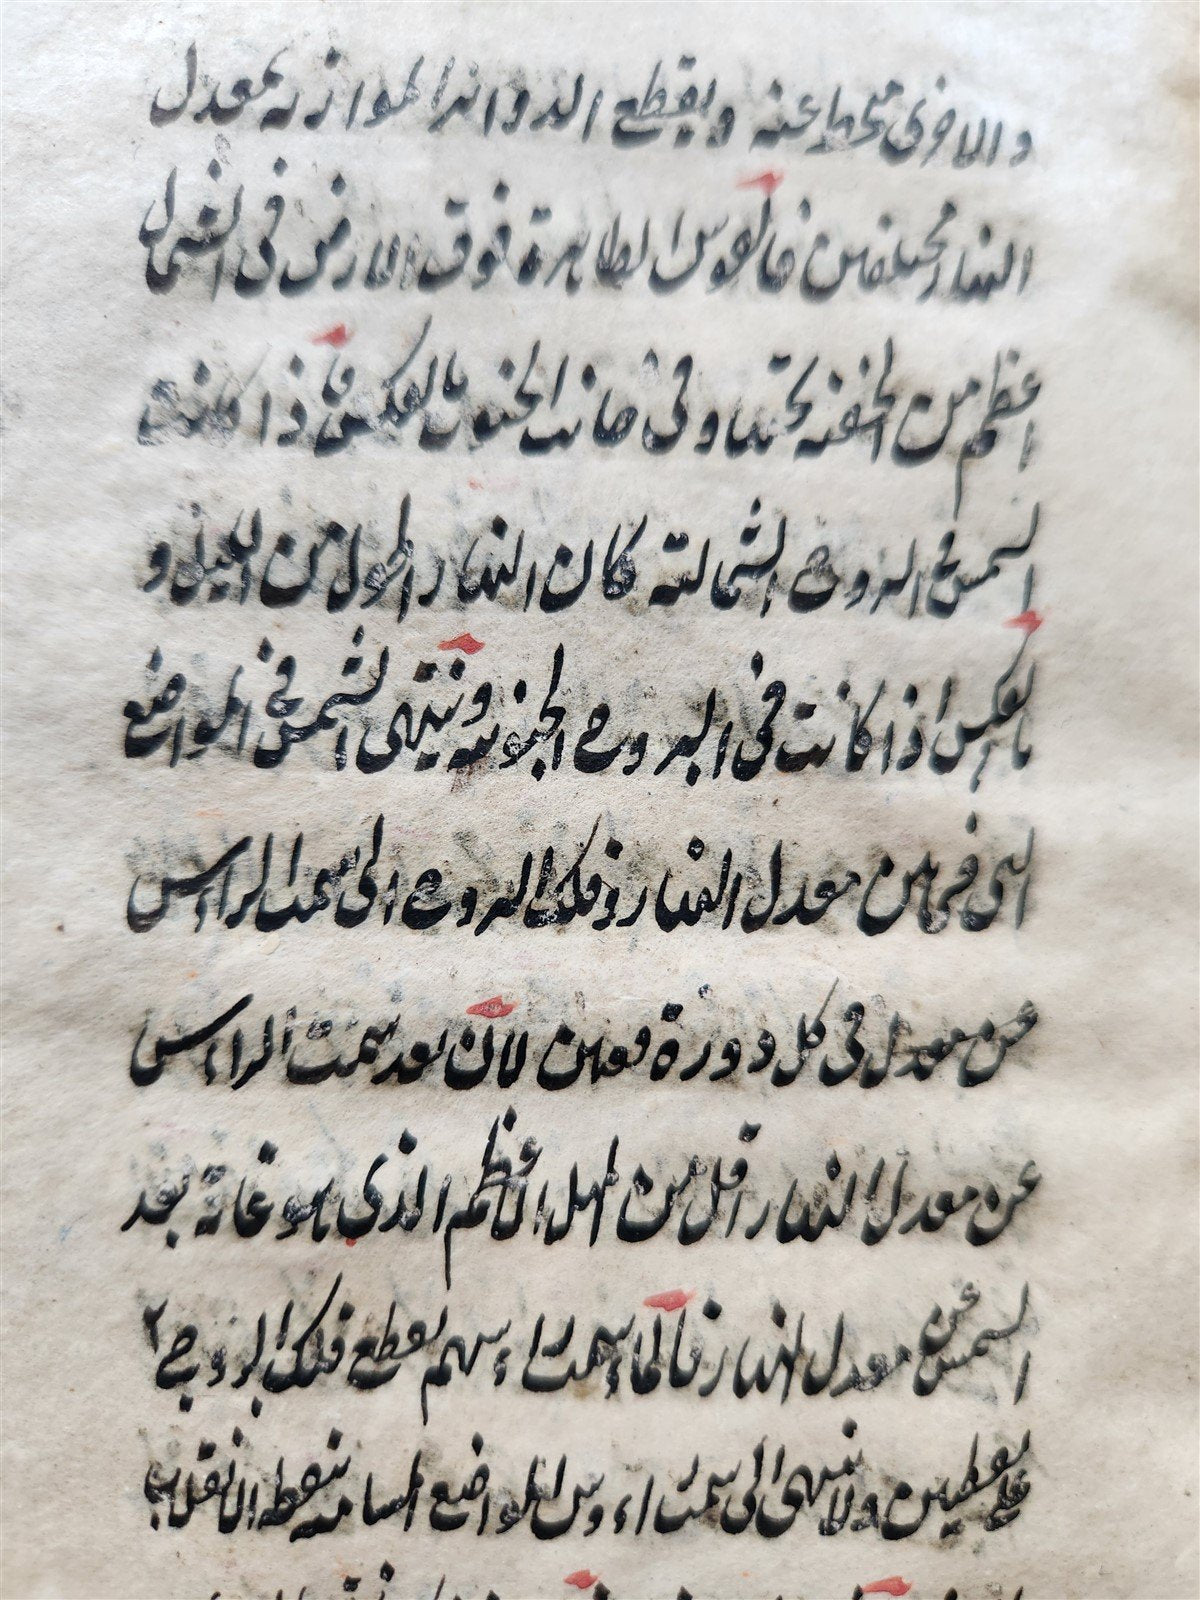 والاخرى منحط عنه ويقطع الدوائر الموازية لمعدل
النهار مختلفين فالقوس الظاهرة فوق الارض فى الشمال
اعظم من الخفية تحتها وفى جانب الجنوب بالعكس فاذا كانت
الشمس فى البروج الشمالية كان النهار اطول من الليل و
بالعكس اذا كانت فى البروج الجنوبية وينتهى الشمس فى المواضع
التى فيما بين معدل النهار وفلك البروج الى سمت الراس
عن معدل فى كل دورة مرتين لان بعد سمت الراس
عن معدل النهار اقل من الميل الاعظم الذى هو غاية بعد
الشمس عن معدل النهار فالمار بسمت راءسهم يقطع فلك البروج
على نقطتين ولا ينتهى الى سمت راءوس المواضع المسامتة لنقطة الانقلاب